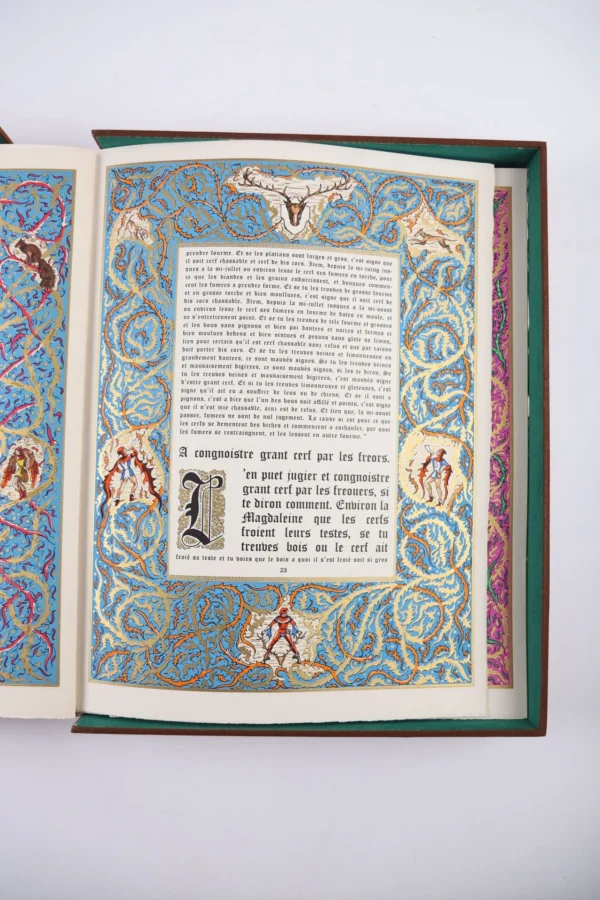 prendre fourme. Et se les plataus sont larges et gros, c'est signe que
il soit cerf chassable et cerf de dis cors. Item, depuis la mi-juing jus-
ques a la mi-juillet ou environ lesse le cerf ses fumees en torche, pour
ce que les viandes et les grains endurcissent, et donques commen-
cent les fumees a prendre forme. Et se tu les treuves de grosse fourme
et en grosse torche et bien moullues, c'est signe que il soit cerf de
dis cors chassable. Item, depuis la mi-juillet jusques a la mi-aoust
ou environ lesse le cerf ses fumees en fourme de dates en moule, et
ne s'entretiennent point. Et se tu les treuves de tele fourme et grosses
et les bous sans pignons et bien poi dantees et noires et fermes et
bien moulues dedens et bien ointues et pesans sans glete ne limon,
tien pour certain qu'il est cerf chassable sans refus et que par raison
doit porter dis cors. Et se tu les treuves veines et limonneuses ou
grandement dantees, ce sont mauvés signes. Se tu les treuves veines
et mauvaisement digirees, ce sont mauvés signes, si les te diron. Se
tu les treuves veines et mauvaisement digirees, c'est mauvés signe
d'estre grant cerf. Et si tu les treuves limonneuses et gleteuses, c'est
signe qu'il ait eu a souffrir de leus ou de chiens. Et se il sont a
pignons, c'est a dire que l'un des bous soit affilé et pointu, c'est signe
que il n'est mie chassable, ainz est de refus. Et tien que, la mi-aoust
passee, fumees ne sont de nul jugement. La cause si est pour ce que
les cerfs se dementent des biches et commencent a eschaufer, par quoi
les fumees se restraingnent, et les lessent en autre fourme.
A congnoistre grant cerf par les freors.
L'en puet jugier et congnoistre
grant cerf par les freouers, si
te diron comment. Environ la
Magdaleine que les cerfs
froient leurs testes, se tu
treuves bois ou le cerf ait
froié sa teste et tu voies que le bois a quoi il s'est froié soit si gros
23